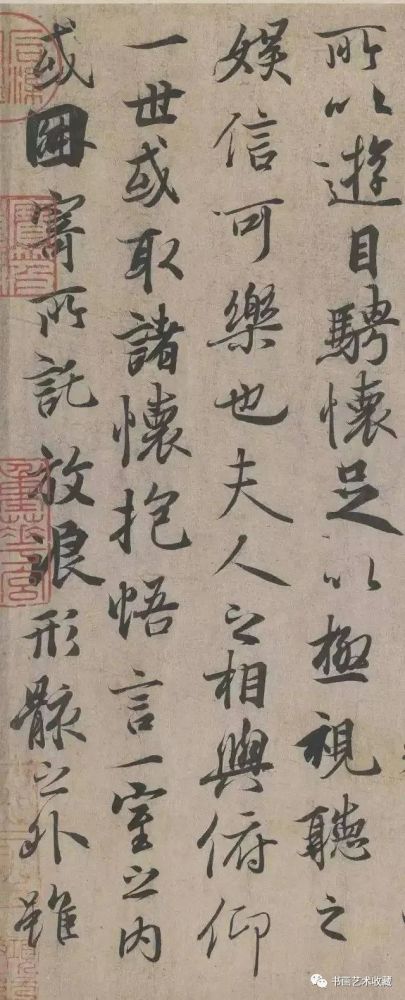 所以遊目騁懷足以極視聽之
娛信可樂也夫人之相與俯仰
一世或取諸懷抱悟言一室之內
或因寄所託放浪形骸之外雖
书画艺术收藏